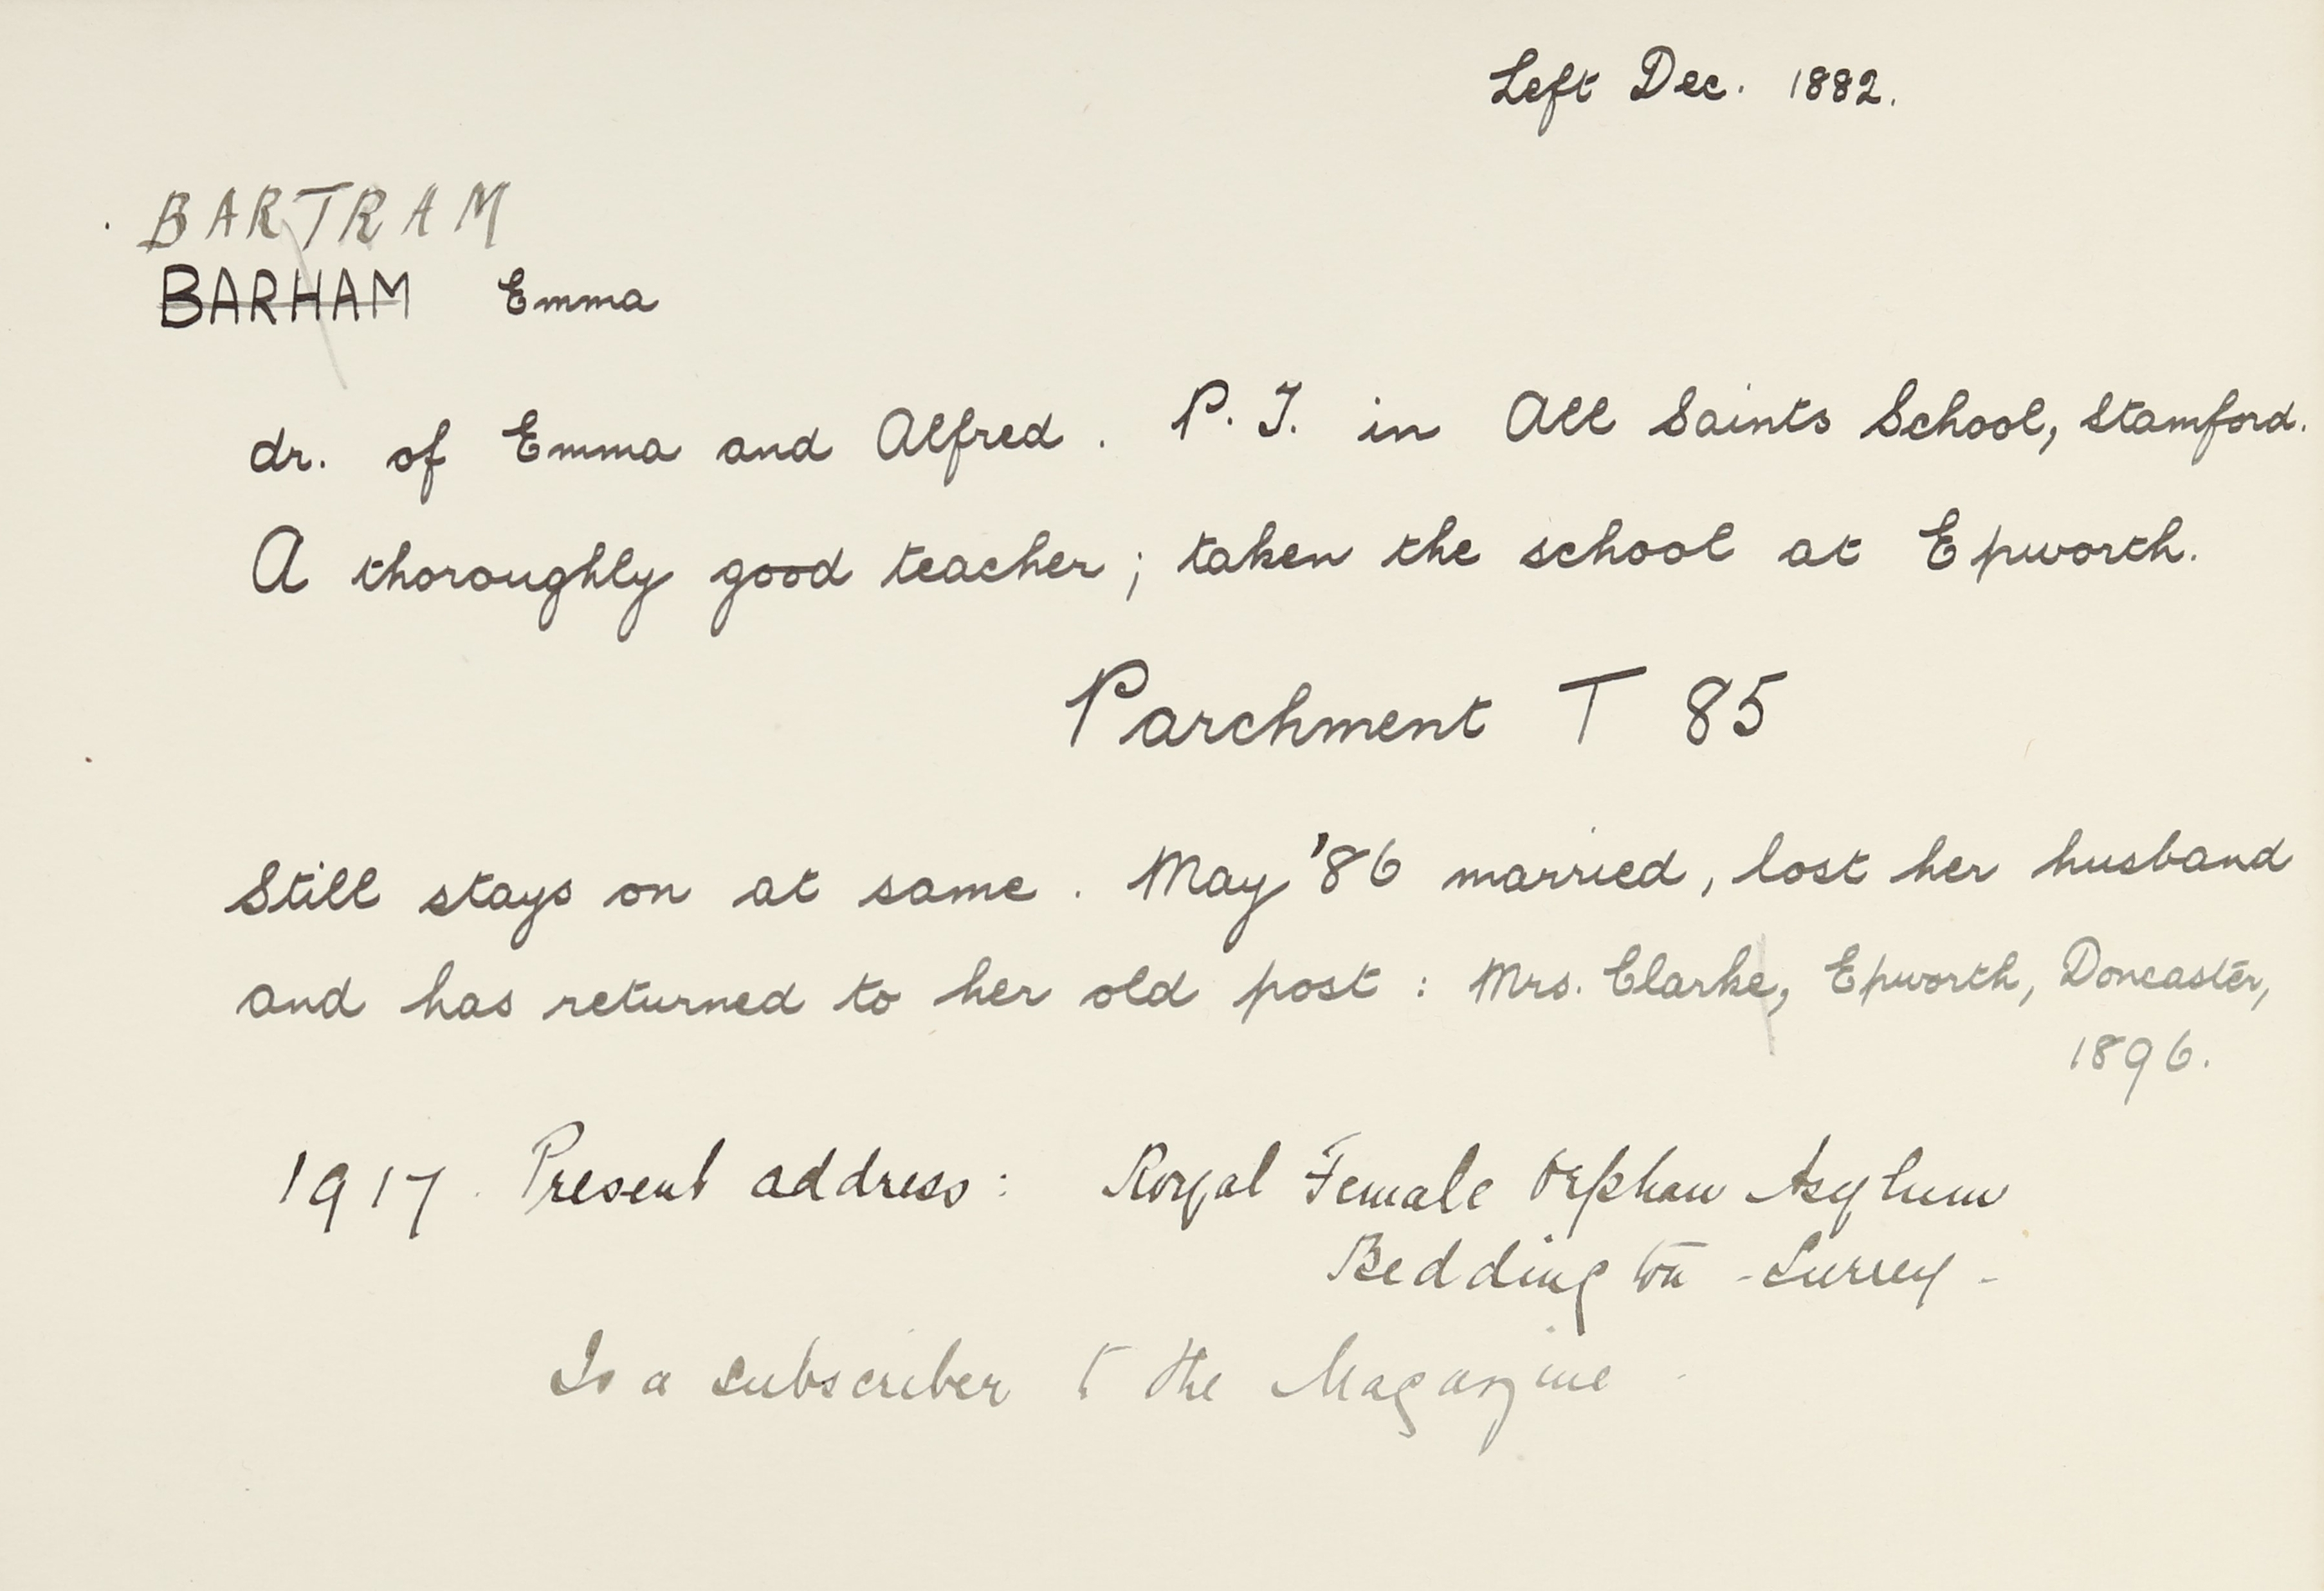 Left Dec. 1882.
BARTRAM
BARHAM Emma
dr. of Emma and Alfred. P.T. in All Saints School, Stamford.
A thoroughly good teacher; taken the school at Epworth.
Parchment T 85
Still stays on at same. May '86 married, lost her husband
and has returned to her old post: Mrs. Clarke, Epworth, Doncaster,
1896.
1917. Present address: Royal Female Orphan Asylum
Beddington - Surrey -
Is a subscriber to the Magazine -